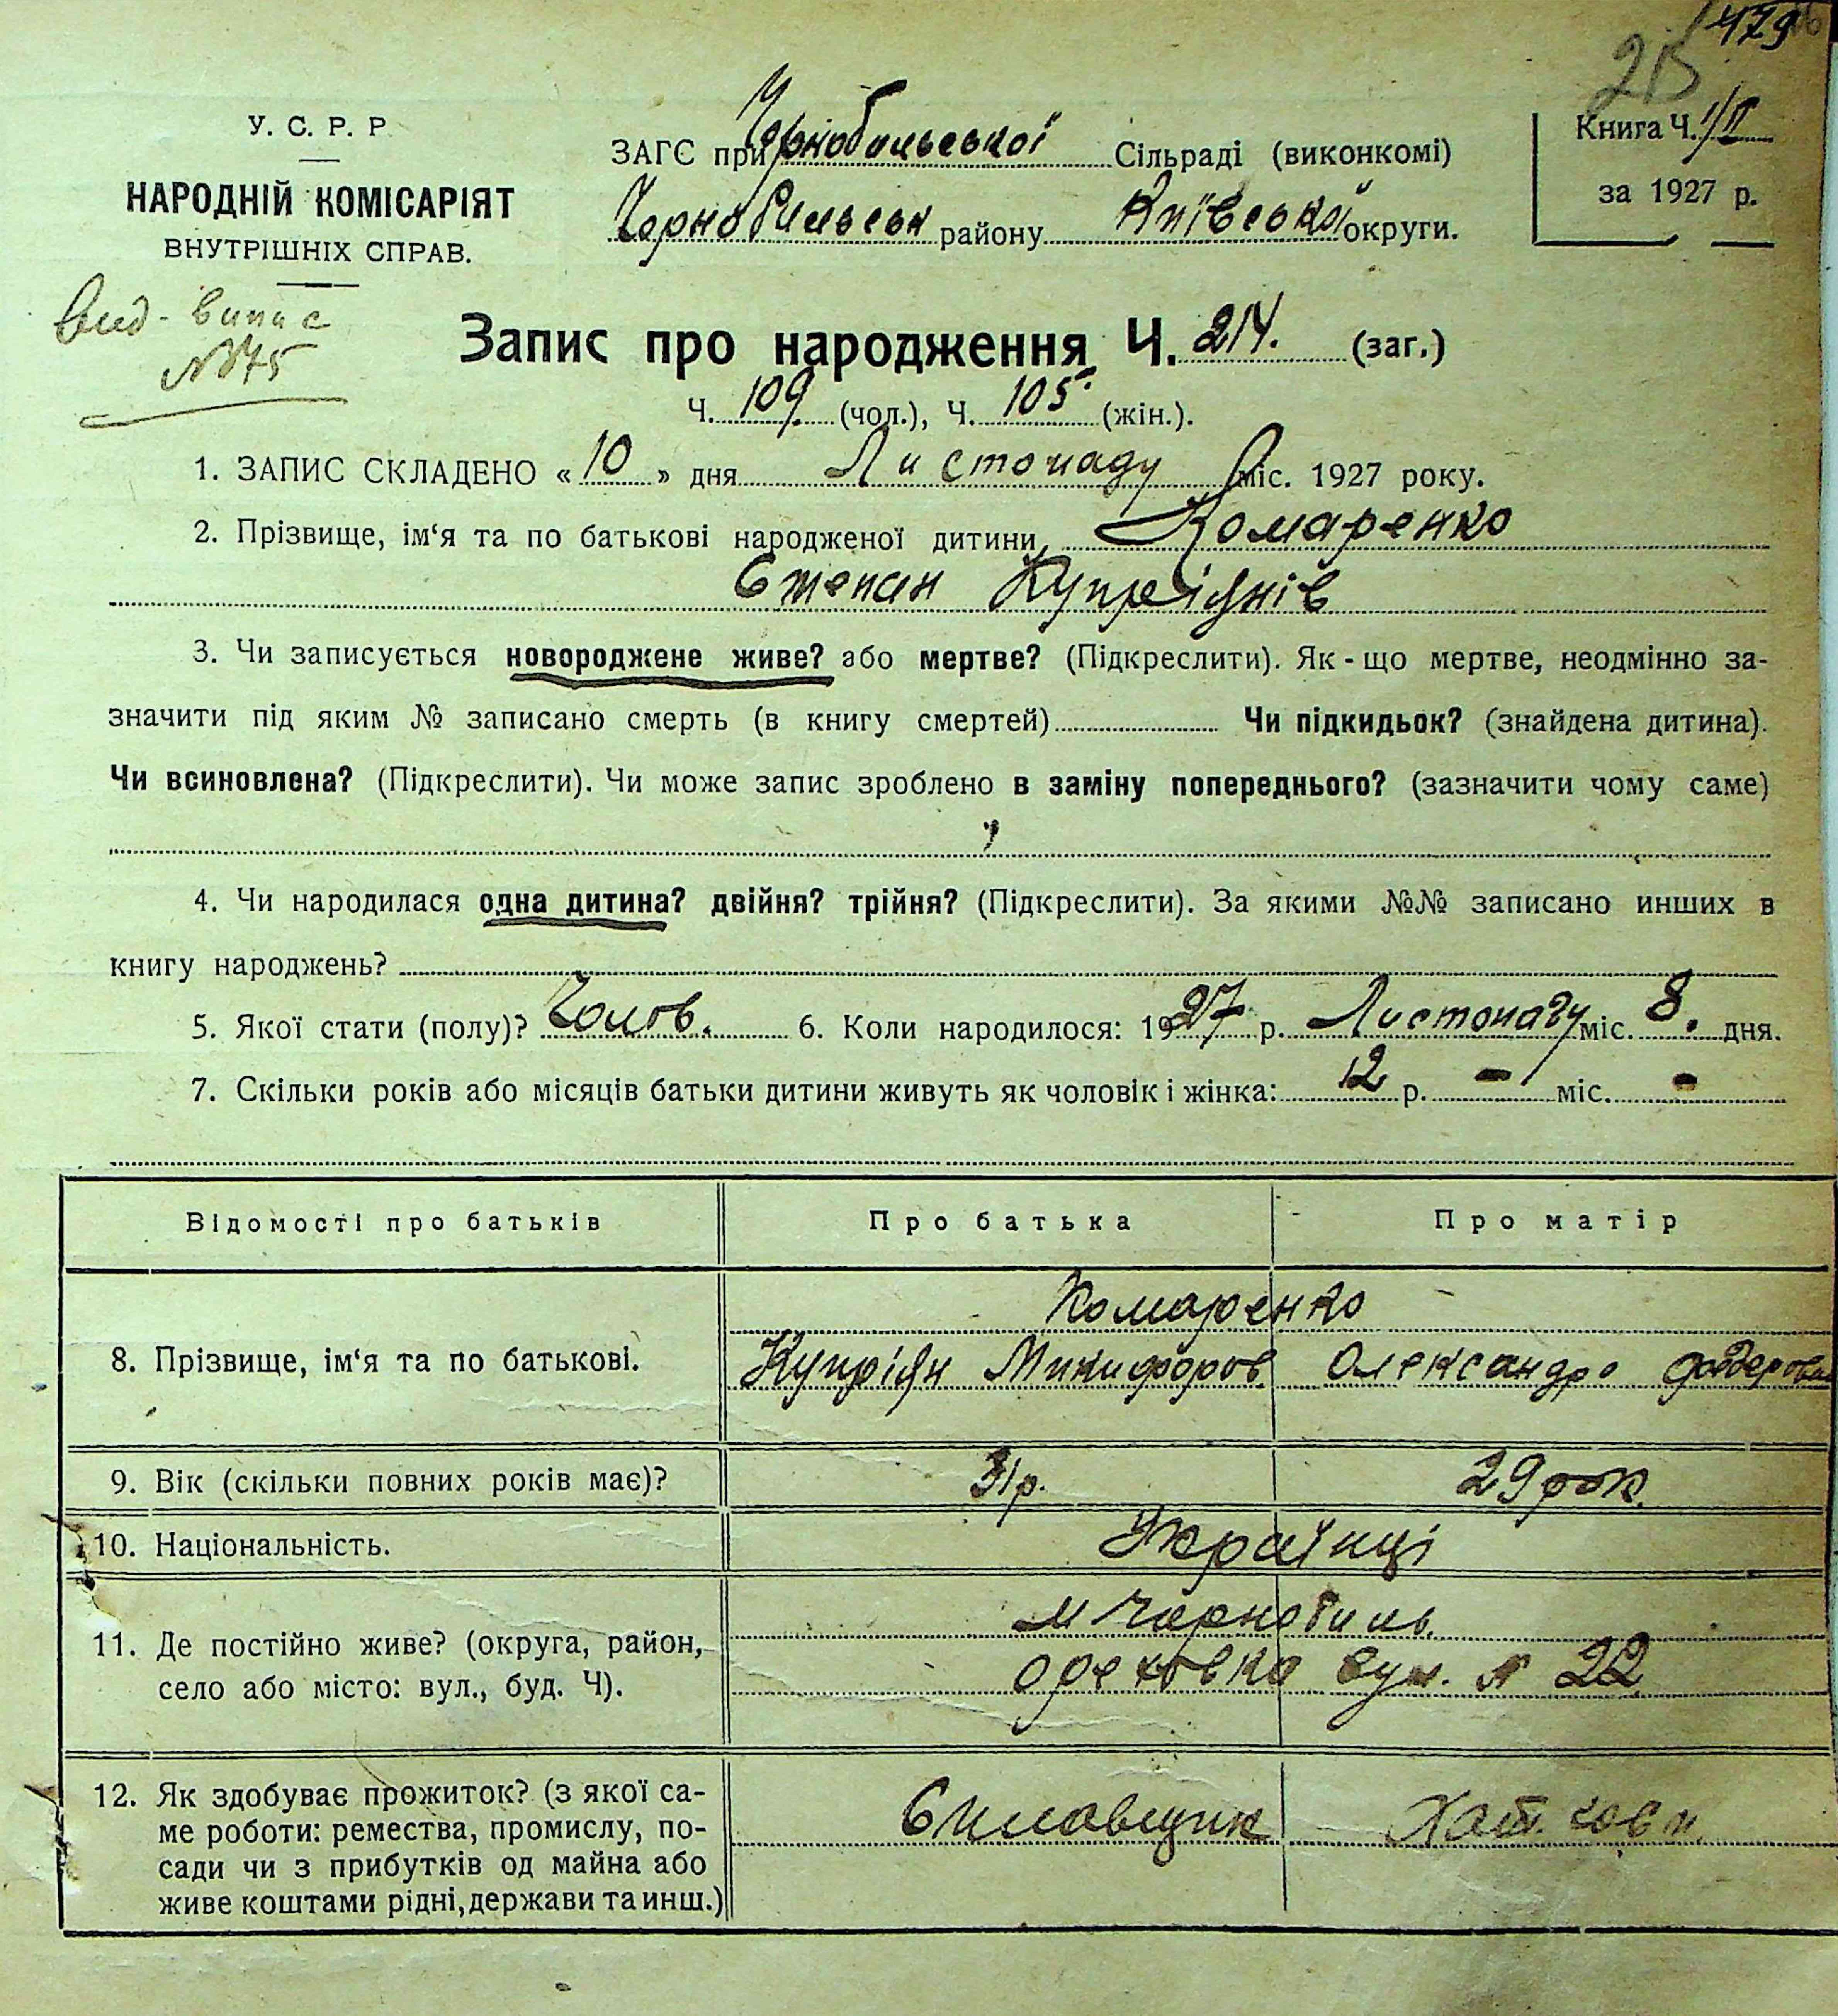 479
У. С. Р. Р
НАРОДНІЙ КОМІСАРІЯТ
ВНУТРІШНІХ СПРАВ.
ЗАГС при Чорнобильської Сільраді (виконкомі)
Чорнобильськ району Київської округи.
Книга Ч. 1/II
за 1927 р.
Вид - випис
№ 75
Запис про народження Ч. 214. (заг.)
Ч. 109. (чол.), Ч. 105. (жін.).
1. ЗАПИС СКЛАДЕНО « 10 » дня Листопаду міс. 1927 року.
2. Прізвище, ім‘я та по батькові народженої дитини, Комаренко
Степан Купріянів
3. Чи записується новороджене живе? або мертве? (Підкреслити). Як - що мертве, неодмінно за-
значити під яким № записано смерть (в книгу смертей) Чи підкидьок? (знайдена дитина).
Чи всиновлена? (Підкреслити). Чи може запис зроблено в заміну попереднього? (зазначити чому саме)
4. Чи народилася одна дитина? двійня? трійня? (Підкреслити). За якими №№ записано инших в
книгу народжень?
5. Якої стати (полу)? Чолов. 6. Коли народилося: 1927 р. Листопаду міс. 8. дня.
7. Скільки років або місяців батьки дитини живуть як чоловік і жінка: 12 р. - міс. -
Відомості про батьків Про батька Про матір
Комаренко
8. Прізвище, ім‘я та по батькові. Купріян Микифоров. Олександра
9. Вік (скільки повних років має)? 31р. 29 рок.
10. Національність. Українці
м Чорнобиль.
11. Де постійно живе? (округа, район,
село або місто: вул., буд. Ч). вул. № 22
12. Як здобуває прожиток? (з якої са-
ме роботи: ремества, промислу, по-
сади чи з прибутків од майна або
живе коштами рідні, держави та инш.)